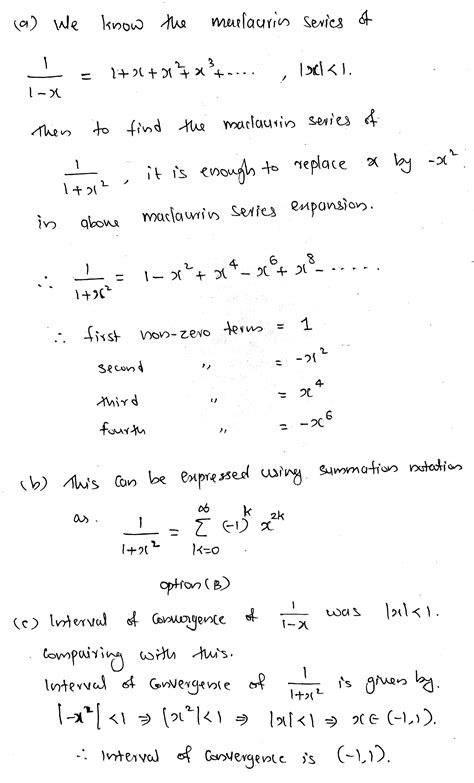 (a) We know the maclaurin series of
1/(1-x) = 1+x+x²+x³+...., |x|<1.
Then to find the maclaurin series of
1/(1+x²), it is enough to replace x by -x²
in above maclaurin series expansion.
∴ 1/(1+x²) = 1-x²+x⁴-x⁶+x⁸-.....
∴ first non-zero term = 1
second " = -x²
third " = x⁴
fourth " = -x⁶
(b) This can be expressed using summation notation
as. 1/(1+x²) = ∑_{k=0}^{∞} (-1)^k x^{2k}
option (B)
(c) Interval of Convergence of 1/(1-x) was |x|<1.
Compairing with this.
Interval of Convergence of 1/(1+x²) is given by.
|-x²|<1 ⇒ |x²|<1 ⇒ |x|<1 ⇒ x∈(-1,1).
∴ Interval of Convergence is (-1,1).